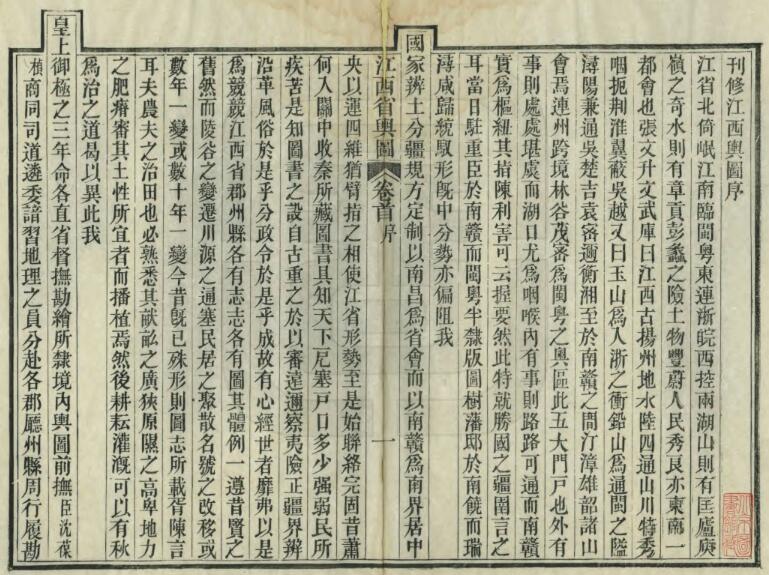 刊修江西輿圖序
江省北倚岷江南臨閩粵東連浙皖西控兩湖山則有匡廬庾
嶺之奇水則有章貢彭蠡之險土物豐蔚人民秀良亦東南一
都會也張文升文武庫曰江西古揚州地水陸四通山川特秀
咽扼荆淮翼蔽吳越又曰玉山爲人浙之衝鉛山爲通閩之隘
潯陽兼通吳楚吉袁密邇衡湘至於南贛之間汀漳雄韶諸山
會焉連州跨境林谷茂密爲閩粵之奧區此五大門戶也外有
事則處處堪虞而湖口尤爲咽喉內有事則路路可通而南贛
實爲樞紐其指陳利害可云握要然此特就勝國之疆圉言之
耳當日駐重臣於南贛而閩粵半隸版圖樹藩邸於南饒而瑞
潯咸歸統馭形旣中分勢亦偏阻我
國家辨土分疆規方定制以南昌爲省會而以南贛爲南界居中
江西省輿圖 卷首 序 一
央以運四維猶臂指之相使江省形勢至是始聯絡完固昔蕭
何入關中收秦所藏圖書具知天下阨塞戶口多少强弱民所
疾苦是知圖書之設自古重之於以審遠邇察夷險正疆界辨
沿革風俗於是乎分政令於是乎成故有心經世者靡弗以是
爲兢兢江西省郡州縣各有志志各有圖其體例一遵昔賢之
舊然而陵谷之變遷川源之通塞民居之聚散名號之改移或
數年一變或數十年一變今昔旣已殊形則圖志所載胥陳言
耳夫農夫之治田也必熟悉其畎畝之廣狹原隰之高卑地力
之肥瘠審其土性所宜者而播植焉然後耕耘灌漑可以有秋
爲治之道曷以異此我
皇上御極之三年命各直省督撫勘繪所隸境內輿圖前撫臣沈葆
楨商同司道遴委諳習地理之員分赴各郡廳州縣周行履勘